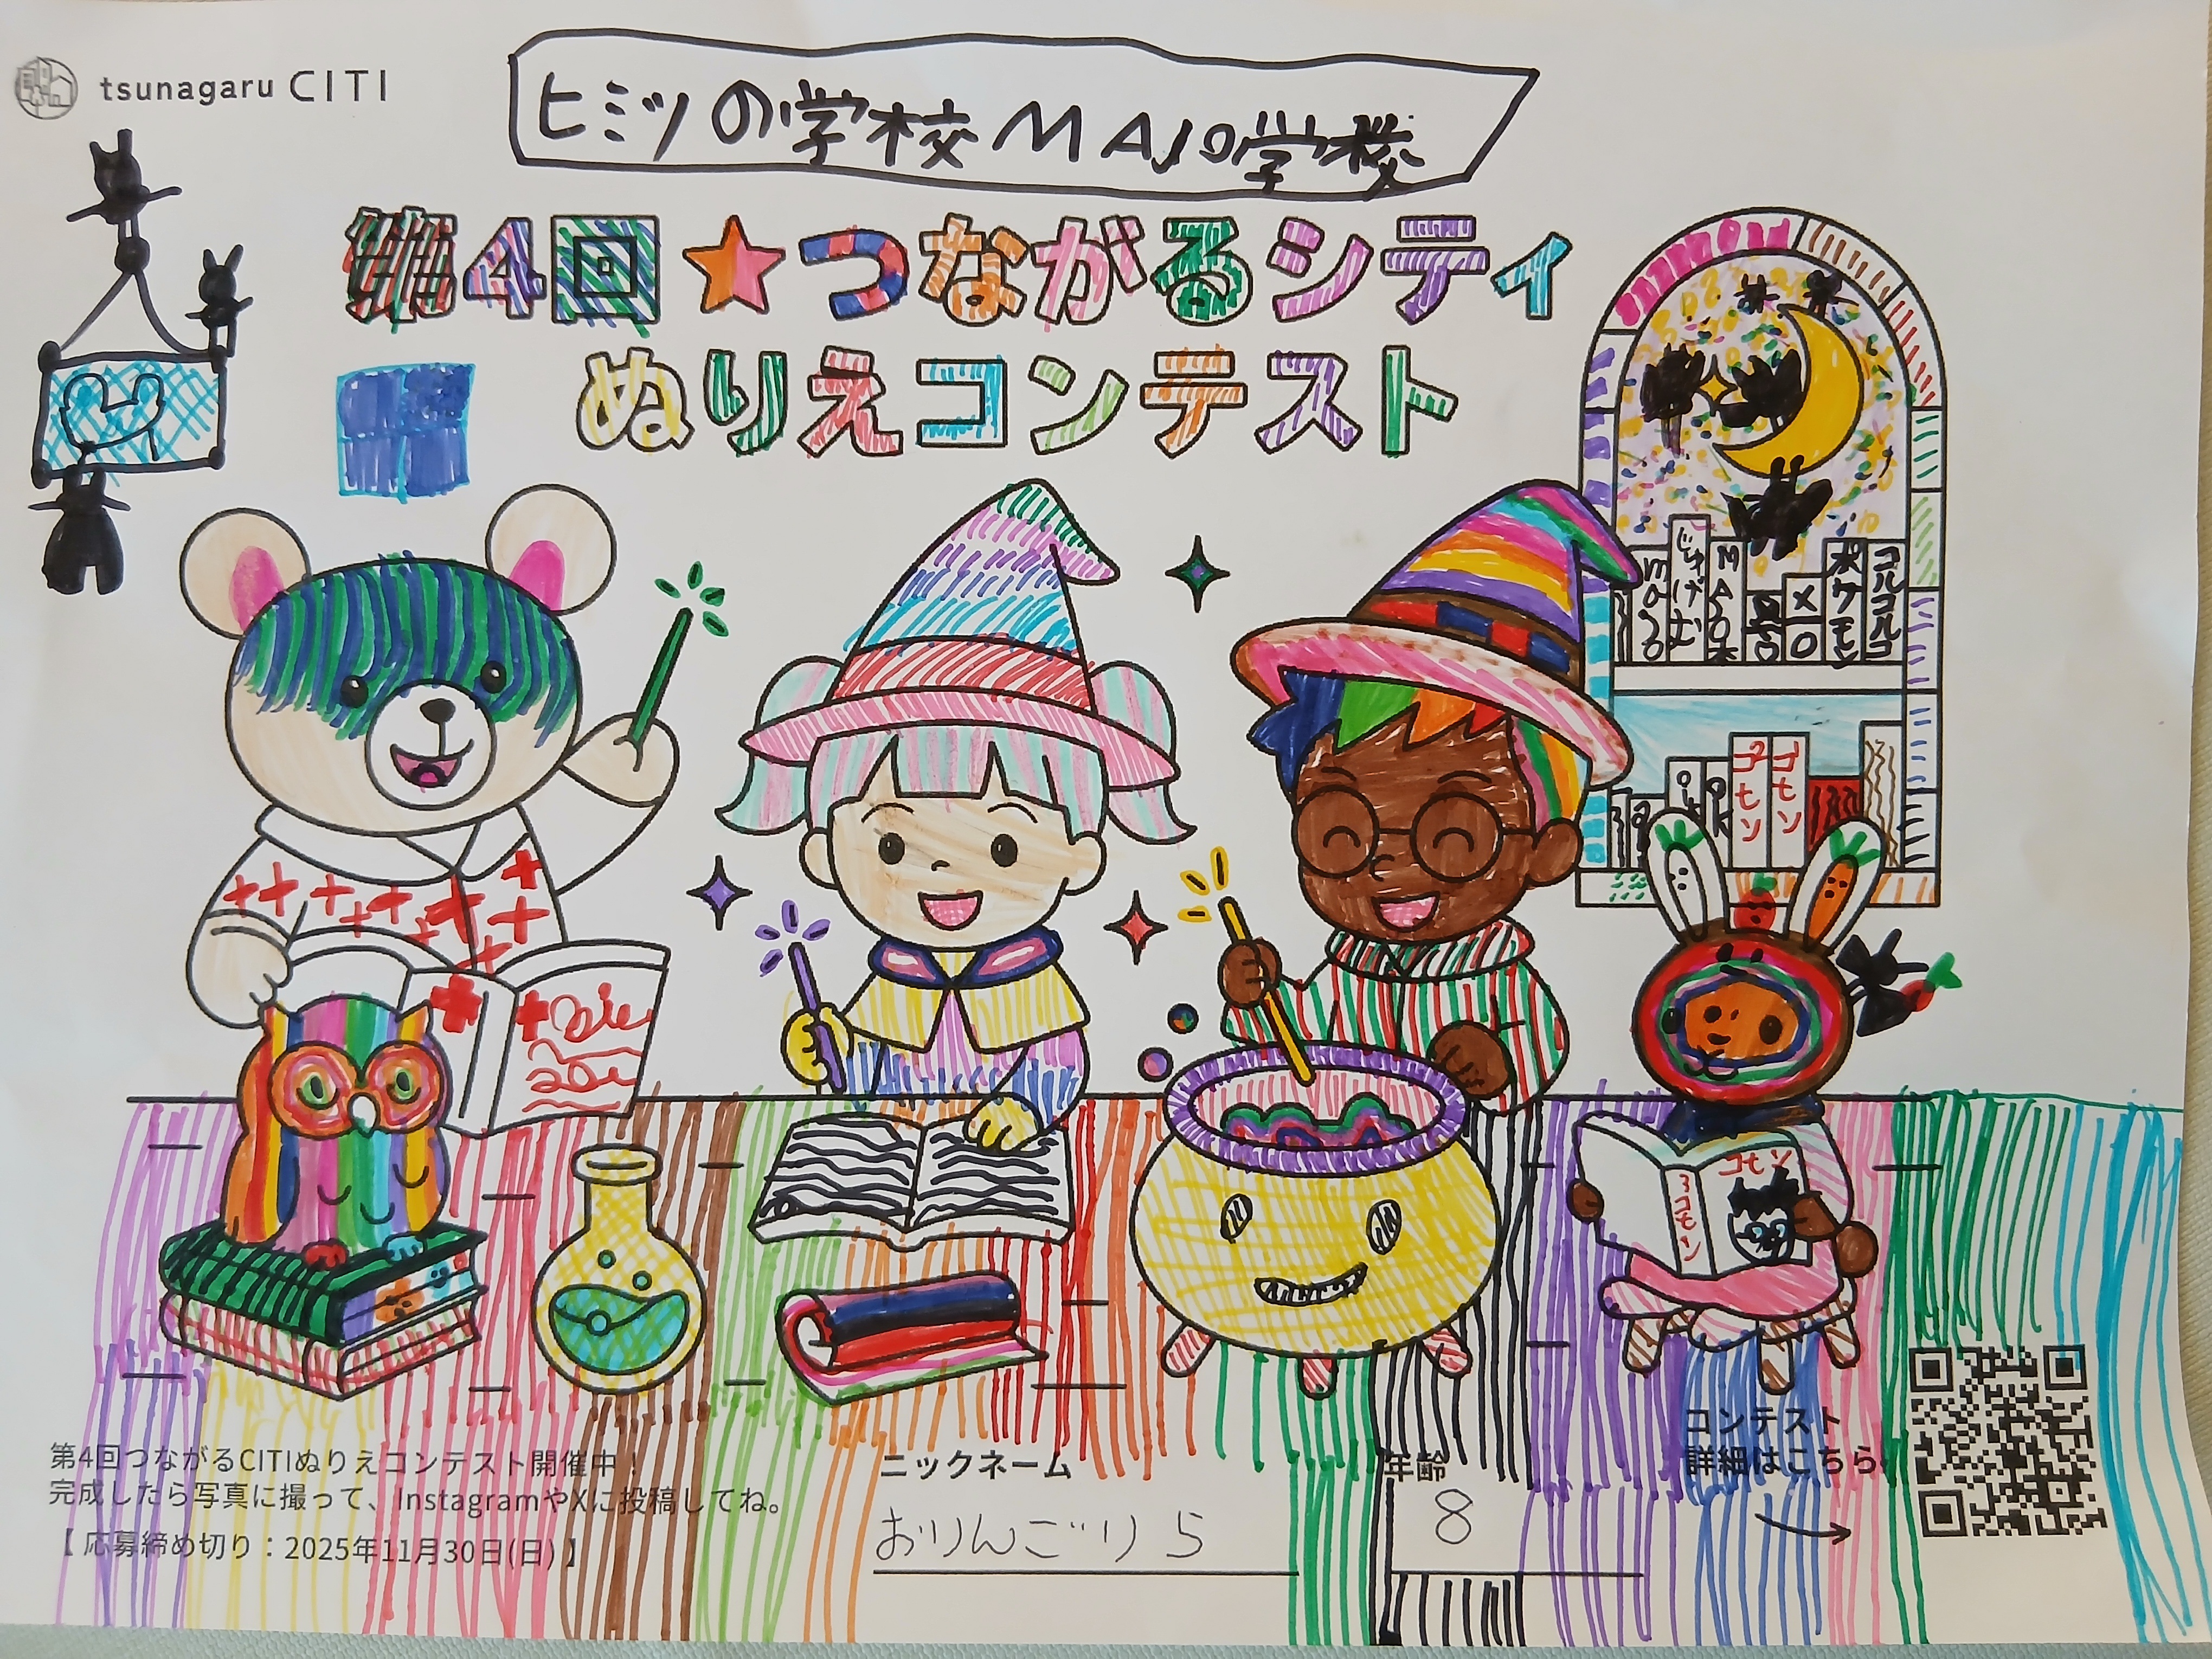 tsunagaru CITI
ヒミツの学校MAJO学校
第4回★つながるシティ
ぬりえコンテスト
じゅげむ
ポケモン
コルコルコ
コモン
コモン
コモン
コモン
第4回つながるCITIぬりえコンテスト開催中!
完成したら写真に撮って、InstagramやXに投稿してね。
【 応募締め切り:2025年11月30日(日) 】
ニックネーム
おりんごりら
年齢
8
コンテスト
詳細はこちら